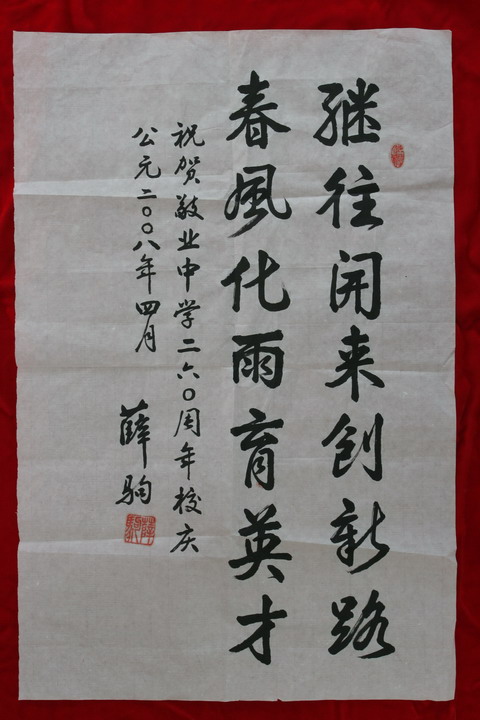 继往开来创新路
春風化雨育英才
祝贺敬业中学二六〇周年校庆
公元二〇〇八年四月
薛驹